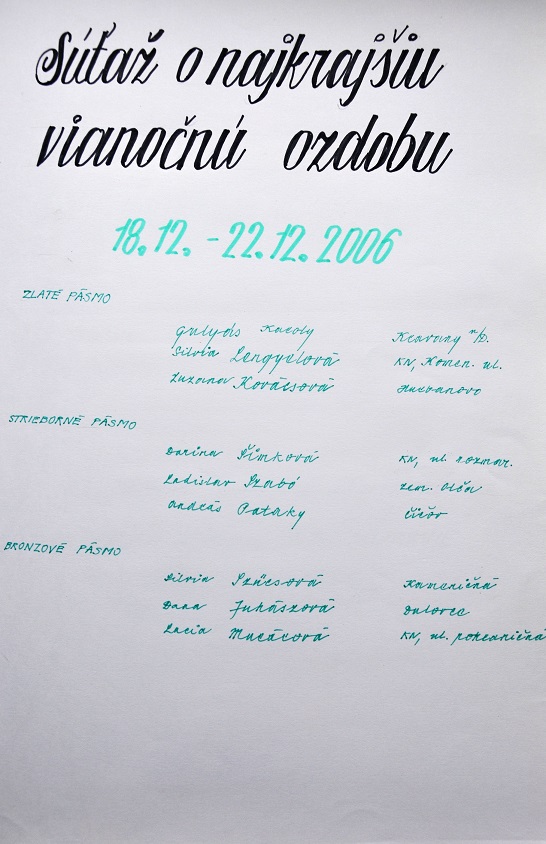 Súťaž o najkrajšiu
vianočnú ozdobu
18.12. - 22.12. 2006
ZLATÉ PÁSMO
Gulyás Karoly Kravany n/D.
Silvia Lengyelová KN, Komen. ul.
Zuzana Kovácsová Hurbanovo
STRIEBORNÉ PÁSMO
Darina Šimková KN, ul. rozmar.
Ladislav Szabó Zem. Olča
András Pataky Číčov
BRONZOVÉ PÁSMO
Silvia Szücsová Kameničná
Dana Juhászová Dulovce
Lucia Mucácová KN, ul. pohraničná